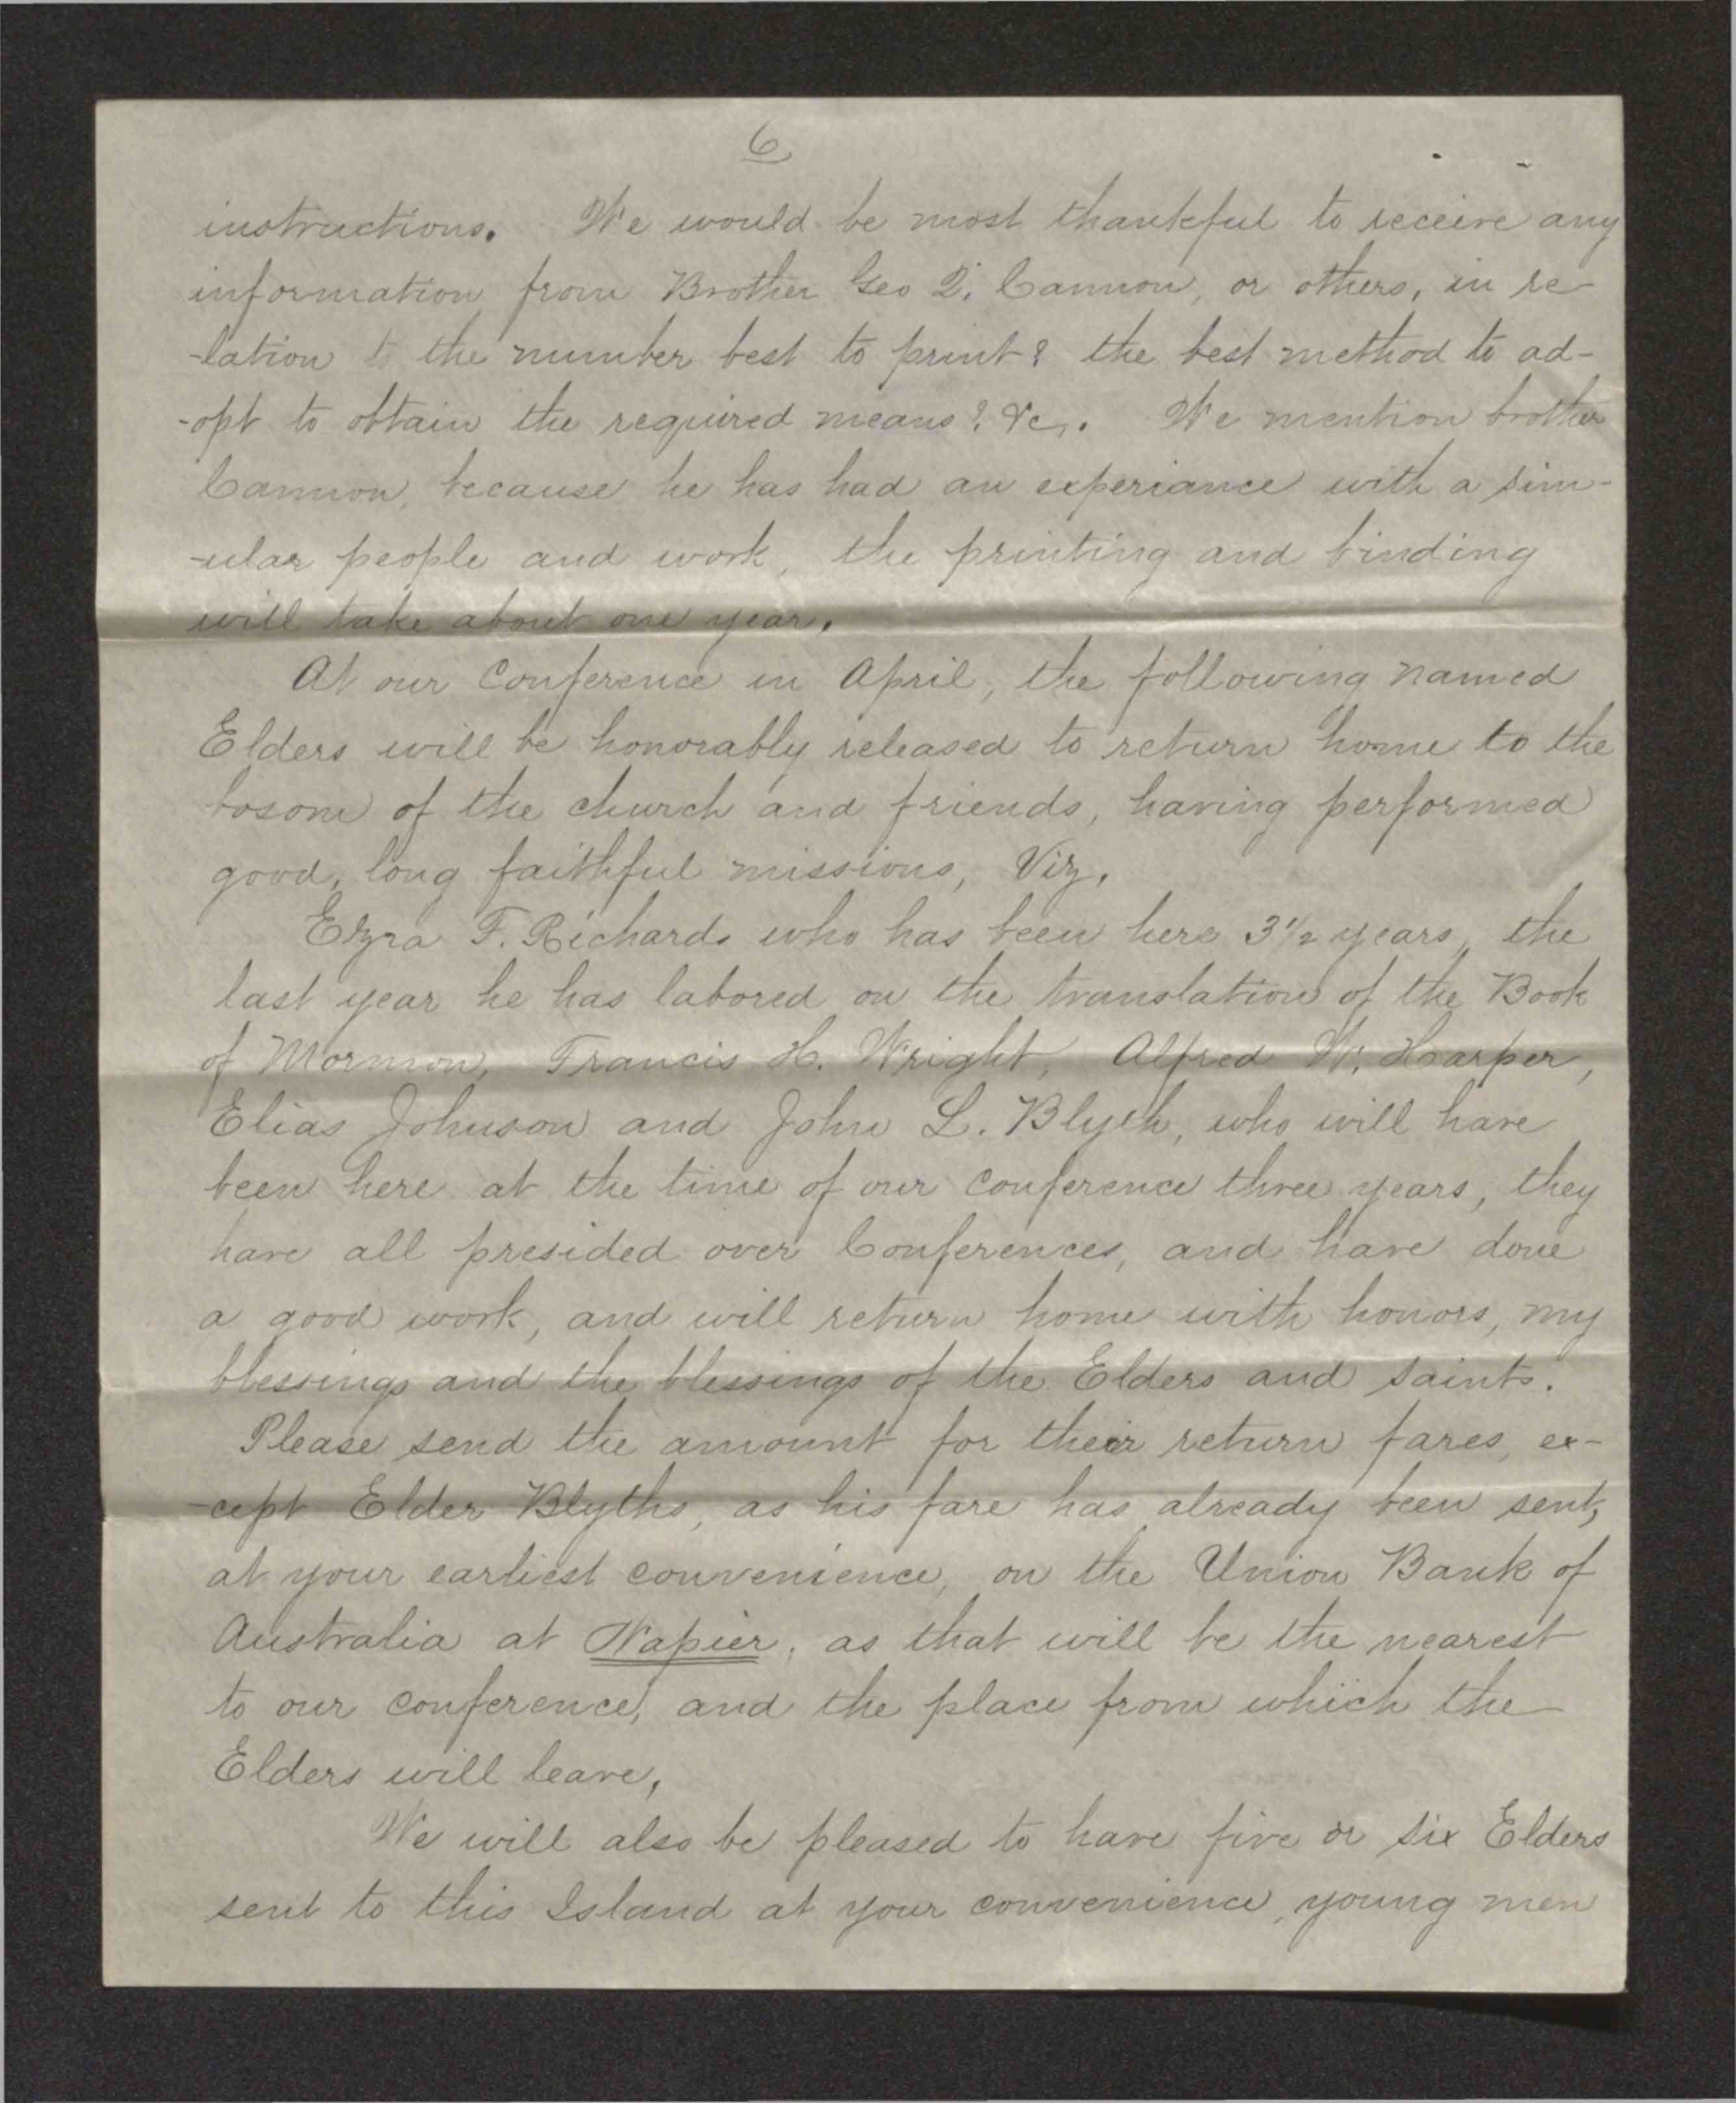 6
instructions. We would be most thankful to receive any
information from Brother Geo Q. Cannon, or others, in re-
-lation to the number best to print? the best method to ad-
-opt to obtain the required means? &c,. We mention brother
Cannon, because he has had an experiance with a sim-
-ular people and work, the printing and binding
will take about one year.
At our Conference in April, the following named
Elders will be honorably released to return home to the
bosom of the church and friends, having performed
good, long faithful missions, Viz,
Ezra F. Richards who has been here 3 1/2 years, the
last year he has labored on the translation of the Book
of Mormon, Francis H. Wright, Alfred W. Harper,
Elias Johnson and John L. Blyth, who will have
been here at the time of our conference three years, they
have all presided over Conferences, and have done
a good work, and will return home with honors, my
blessings and the blessings of the Elders and saints.
Please send the amount for their return fares, ex-
-cept Elder Blyths, as his fare has already been sent,
at your earliest convenience, on the Union Bank of
Australia at Napier, as that will be the nearest
to our conference, and the place from which the
Elders will leave,
We will also be pleased to have five or six Elders
sent to this Island at your convenience, young men